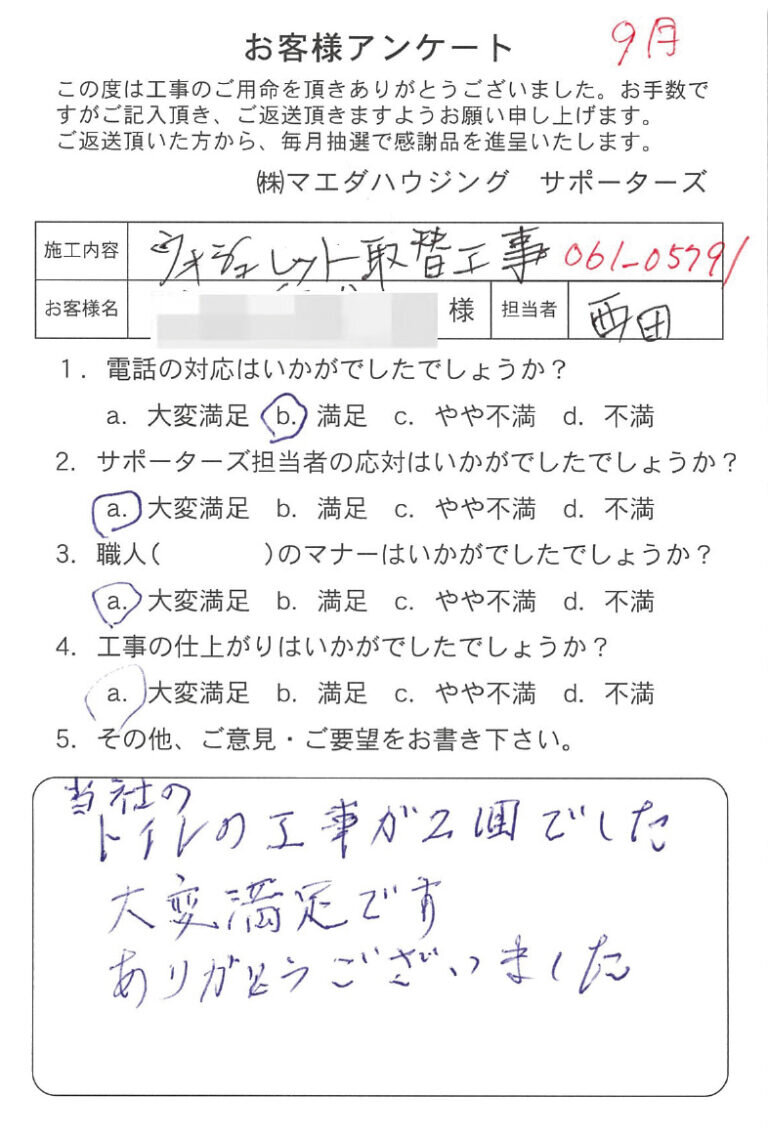 お客様アンケート 9月
この度は工事のご用命を頂きありがとうございました。お手数で
すがご記入頂き、ご返送頂きますようお願い申し上げます。
ご返送頂いた方から、毎月抽選で感謝品を進呈いたします。
㈱マエダハウジング サポーターズ
施工内容 ウォシュレット取替工事 061-05791
お客様名 様 担当者 西田
1. 電話の対応はいかがでしたでしょうか?
a. 大変満足 b. 満足 c. やや不満 d. 不満
2. サポーターズ担当者の応対はいかがでしたでしょうか?
a. 大変満足 b. 満足 c. やや不満 d. 不満
3. 職人( )のマナーはいかがでしたでしょうか?
a. 大変満足 b. 満足 c. やや不満 d. 不満
4. 工事の仕上がりはいかがでしたでしょうか?
a. 大変満足 b. 満足 c. やや不満 d. 不満
5. その他、ご意見・ご要望をお書き下さい。
当社の
トイレの工事が2回でした
大変満足です
ありがとうございました